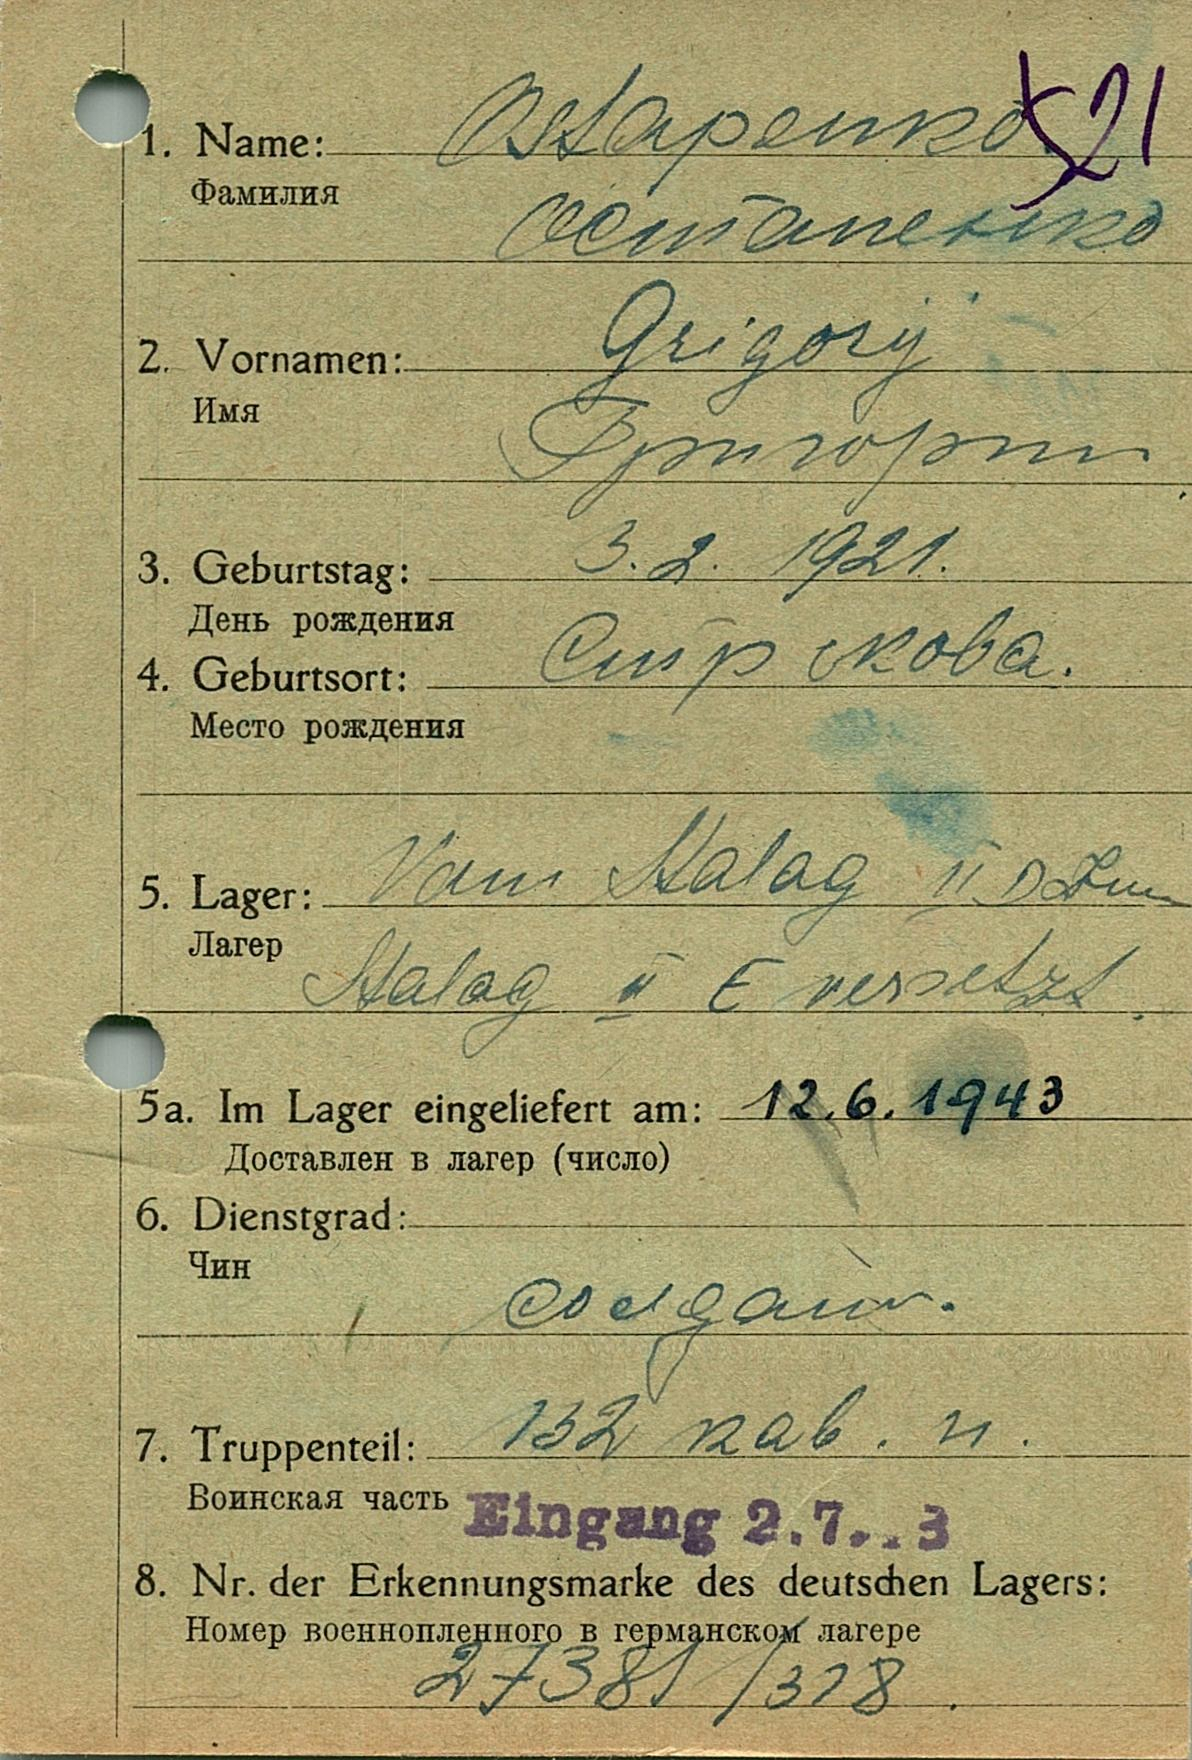 521
1. Name: Ostapenko.
Фамилия
Остапенко
2. Vornamen: Grigorij
Имя
Григории
3. Geburtstag: 3.2.1921.
День рождения
4. Geburtsort:
Место рождения
5. Lager: Vom Stalag II D zum
Лагер
Stalag II E versetzt.
5a. Im Lager eingeliefert am: 12.6.1943
Доставлен в лагер (число)
6. Dienstgrad:
Чин
солдат.
7. Truppenteil: 132 кав. п.
Воинская часть
Eingang 2.7. 3
8. Nr. der Erkennungsmarke des deutschen Lagers:
Номер военнопленного в германском лагере
27381/318.